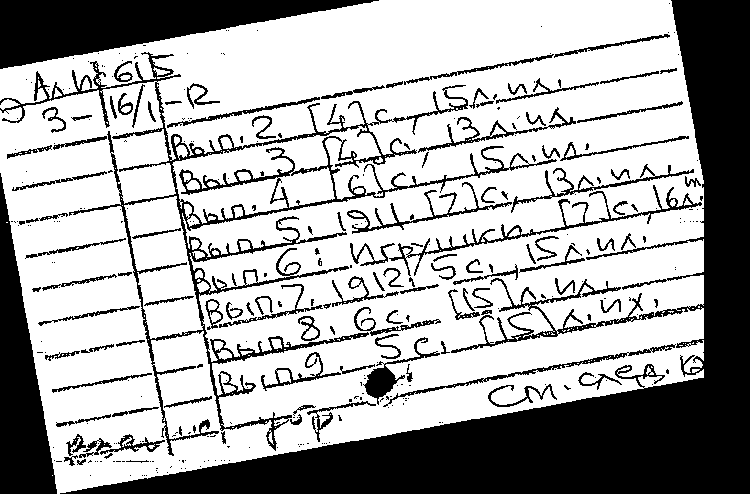 Ал Nс 615
Э 3-16/1-R
Вып. 2. [4] с., 15 л. ил.
Вып. 3. [4] с., 13 л. ил.
Вып. 4. [6] с., 15 л. ил.
Вып. 5. 1911. [7] с., 13 л. ил.
Вып. 6: Игрушки. [7] с., 16 л.
Вып. 7. 1912. 5 с., 15 л. ил.
Вып. 8. 6 с. [15] л. ил.
Вып. 9. 5 с. [15] л. ил.
См. след.